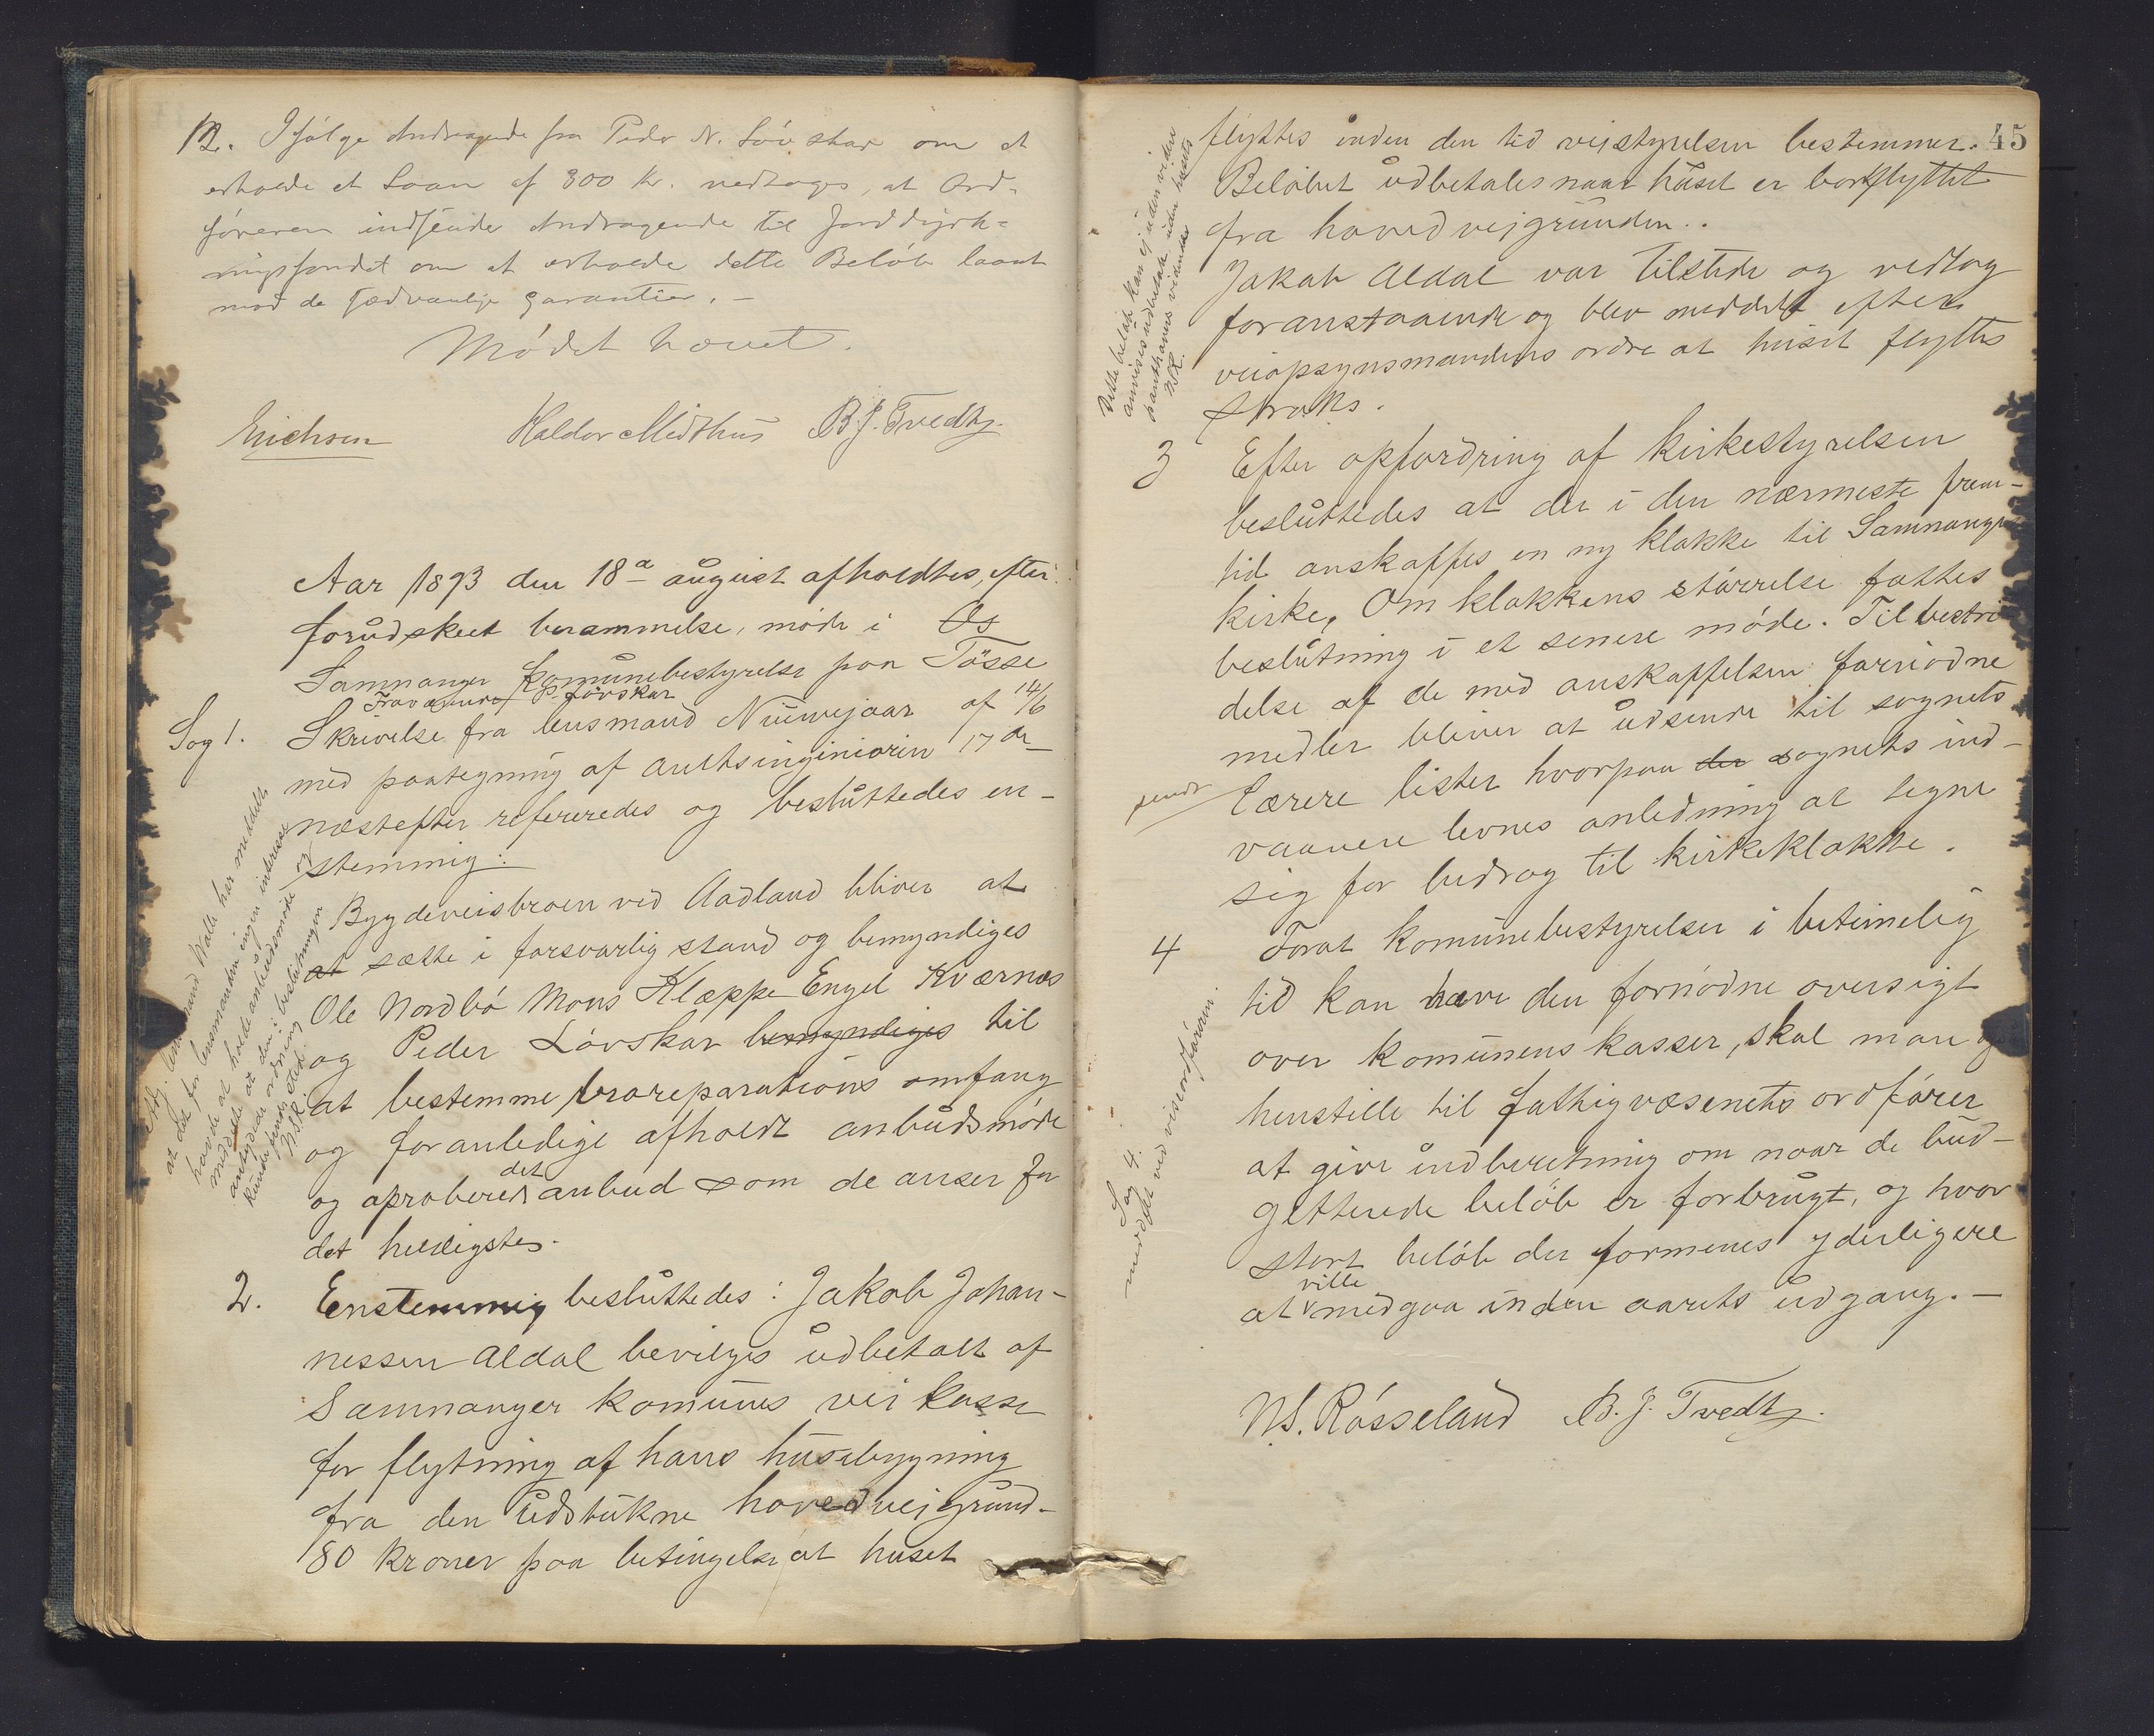 12. Ifølge Andragende fra Peder N. Løvskar om at
erholde et Laan af 300 Kr. vedtoges, at Ord-
føreren indsender Andragende til Jorddyrk-
ningsfondet om at erholde dette Beløb laant
mod de sædvanlige Garantier. —
Mødet hævet.
Erichsen Haldor Midthus B. J. Tvedt
Aar 1893 den 18de august afholdtes, efter
forudskeet berammelse, møde i Os
Samnanger komunebestyrelse paa Tøsse
Fraværende P. Løvskar
Sag 1. Skrivelse fra lensmand Nüwejaar af 14/6
med paategning af amtsingeniøren 17de
næstefter refereredes og besluttedes en-
stemmig:
Bygdeveisbroen ved Aadland bliver at
at sætte i forsvarlig stand og bemyndiges
Ole Nordbø Mons Klæppe Engel Kværnæs
og Peder Løvskar bemyndiges til
at bestemme broreparations omfang
og foranledige afholdt anbudsmøde
og aproberes det anbud som de anser for
det heldigste.
Adj. lensmand Walle har meddelt
at det for lensmanden ingen interesse
havde at holde anbudsmøde og
meddelte at den i beslutningen
antydede ordning
kunde finde sted.
NSR.
2. Enstemmig besluttedes: Jakob Johan-
nessen Aldal bevilges udbetalt af
Samnanger komunes vei kasse
for flytning af hans husebygning
fra den udstukne hovedveigrund-
80 kroner paa betingelse at huset
45
flyttes inden den tid veistyrelsen bestemmer.
Beløbet udbetales naar huset er bortflyttet
fra hovedveigrunden..
Jakob Aldal var tilstede og vedtog
foranstaaende og blev meddelt efter
veiopsynsmandens ordre at huset flyttes
straks.
Dette beløb kan ej uden videre
anvises udbetalt uden husets
panthavers vidende
NSR.
3 Efter opfordring af kirkestyrelsen
besluttedes at der i den nærmeste frem-
tid anskaffes en ny klokke til Samnanger
kirke, Om klokkens størrelse fattes
beslutning i et senere møde. Til bestri
delse af de med anskaffelsen fornødne
medler bliver at udsende til sognets
lærere lister hvorpaa der sognets ind-
vaanere levnes anledning at tegne
sig for bedrag til kirkeklokke.
sendt
4 Forat komunebestyrelsen i betimelig
tid kan have den fornødne oversigt
over komunens kasser, skal man og
henstille til fathigvæsenets ordfører
at give indberetning om naar de bud-
getterede beløb er forbrugt, og hvor
stort beløb der formenes yderligere
at ville medgaa inden aarets udgang. —
Sag 4.
meddelt ved viseordføreren.
N.S. Røsseland B. J. Tvedt